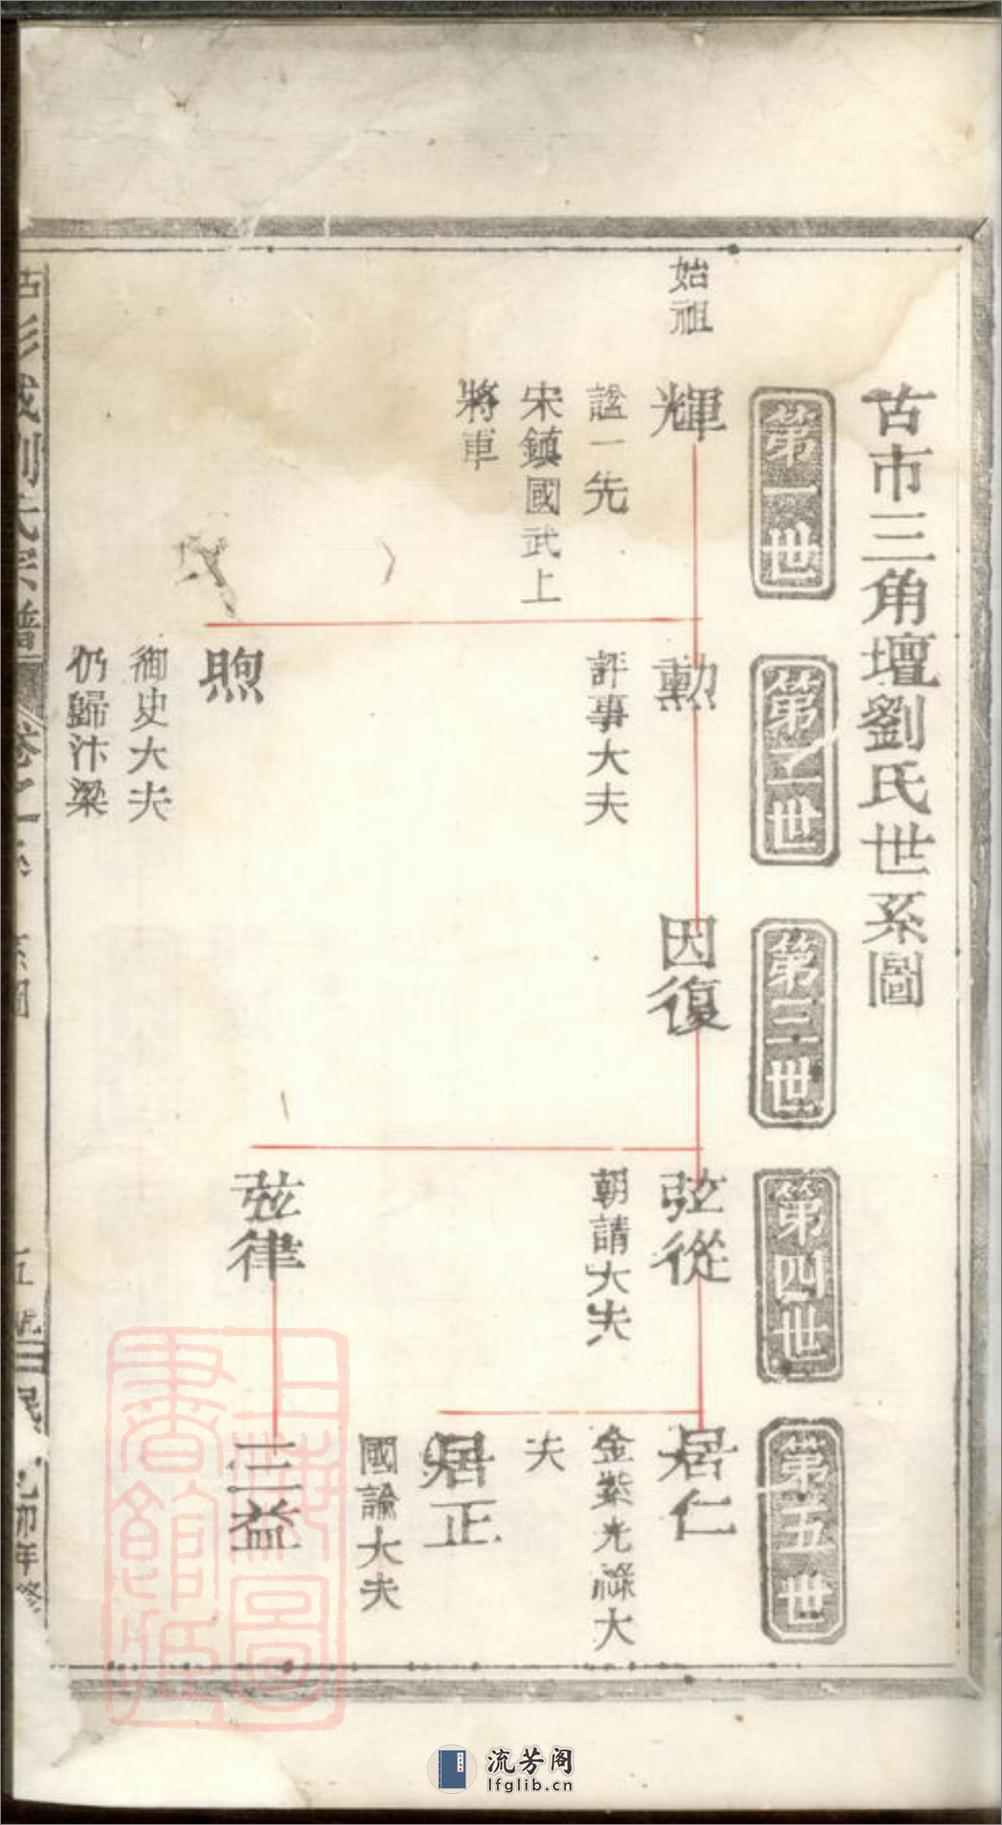 古市三角壇劉氏世系圖
第一世
第二世
第三世
第四世
第五世
始祖
輝
諡一先
宋鎮國武上
將軍
勳
評事大夫
煦
御史大夫
仍歸汴梁
因復
弦從
朝請大夫
弦律
居仁
金紫光祿大
夫
居正
國諭大夫
三益
彭城劉氏宗譜
卷之一
系圖
五
民
己卯年修
上海圖
書館藏
流芳阁
lfglib.cn